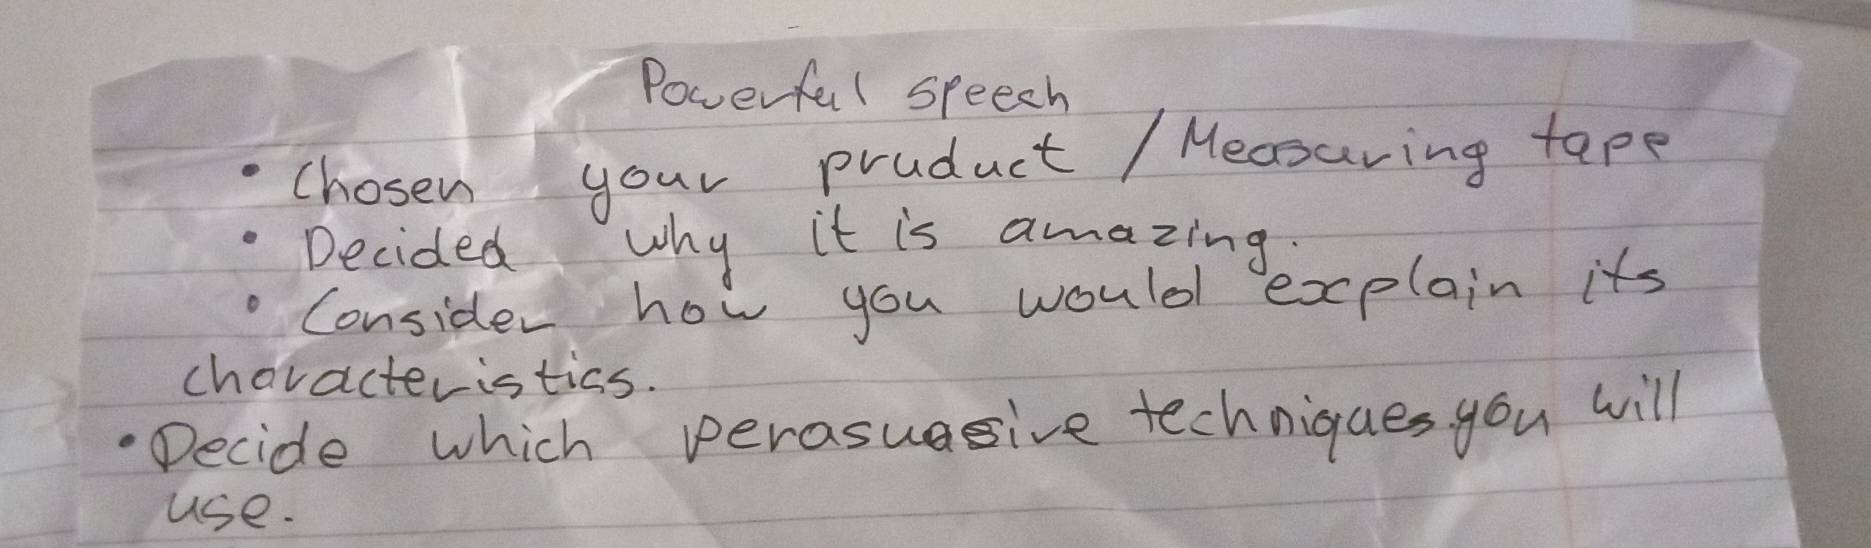 Powerful speech
• Chosen your pruduct / Measuring tape
• Decided why it is amazing.
• Consider how you would explain its
characteristics.
• Decide which perasuasive techniques you will
use.